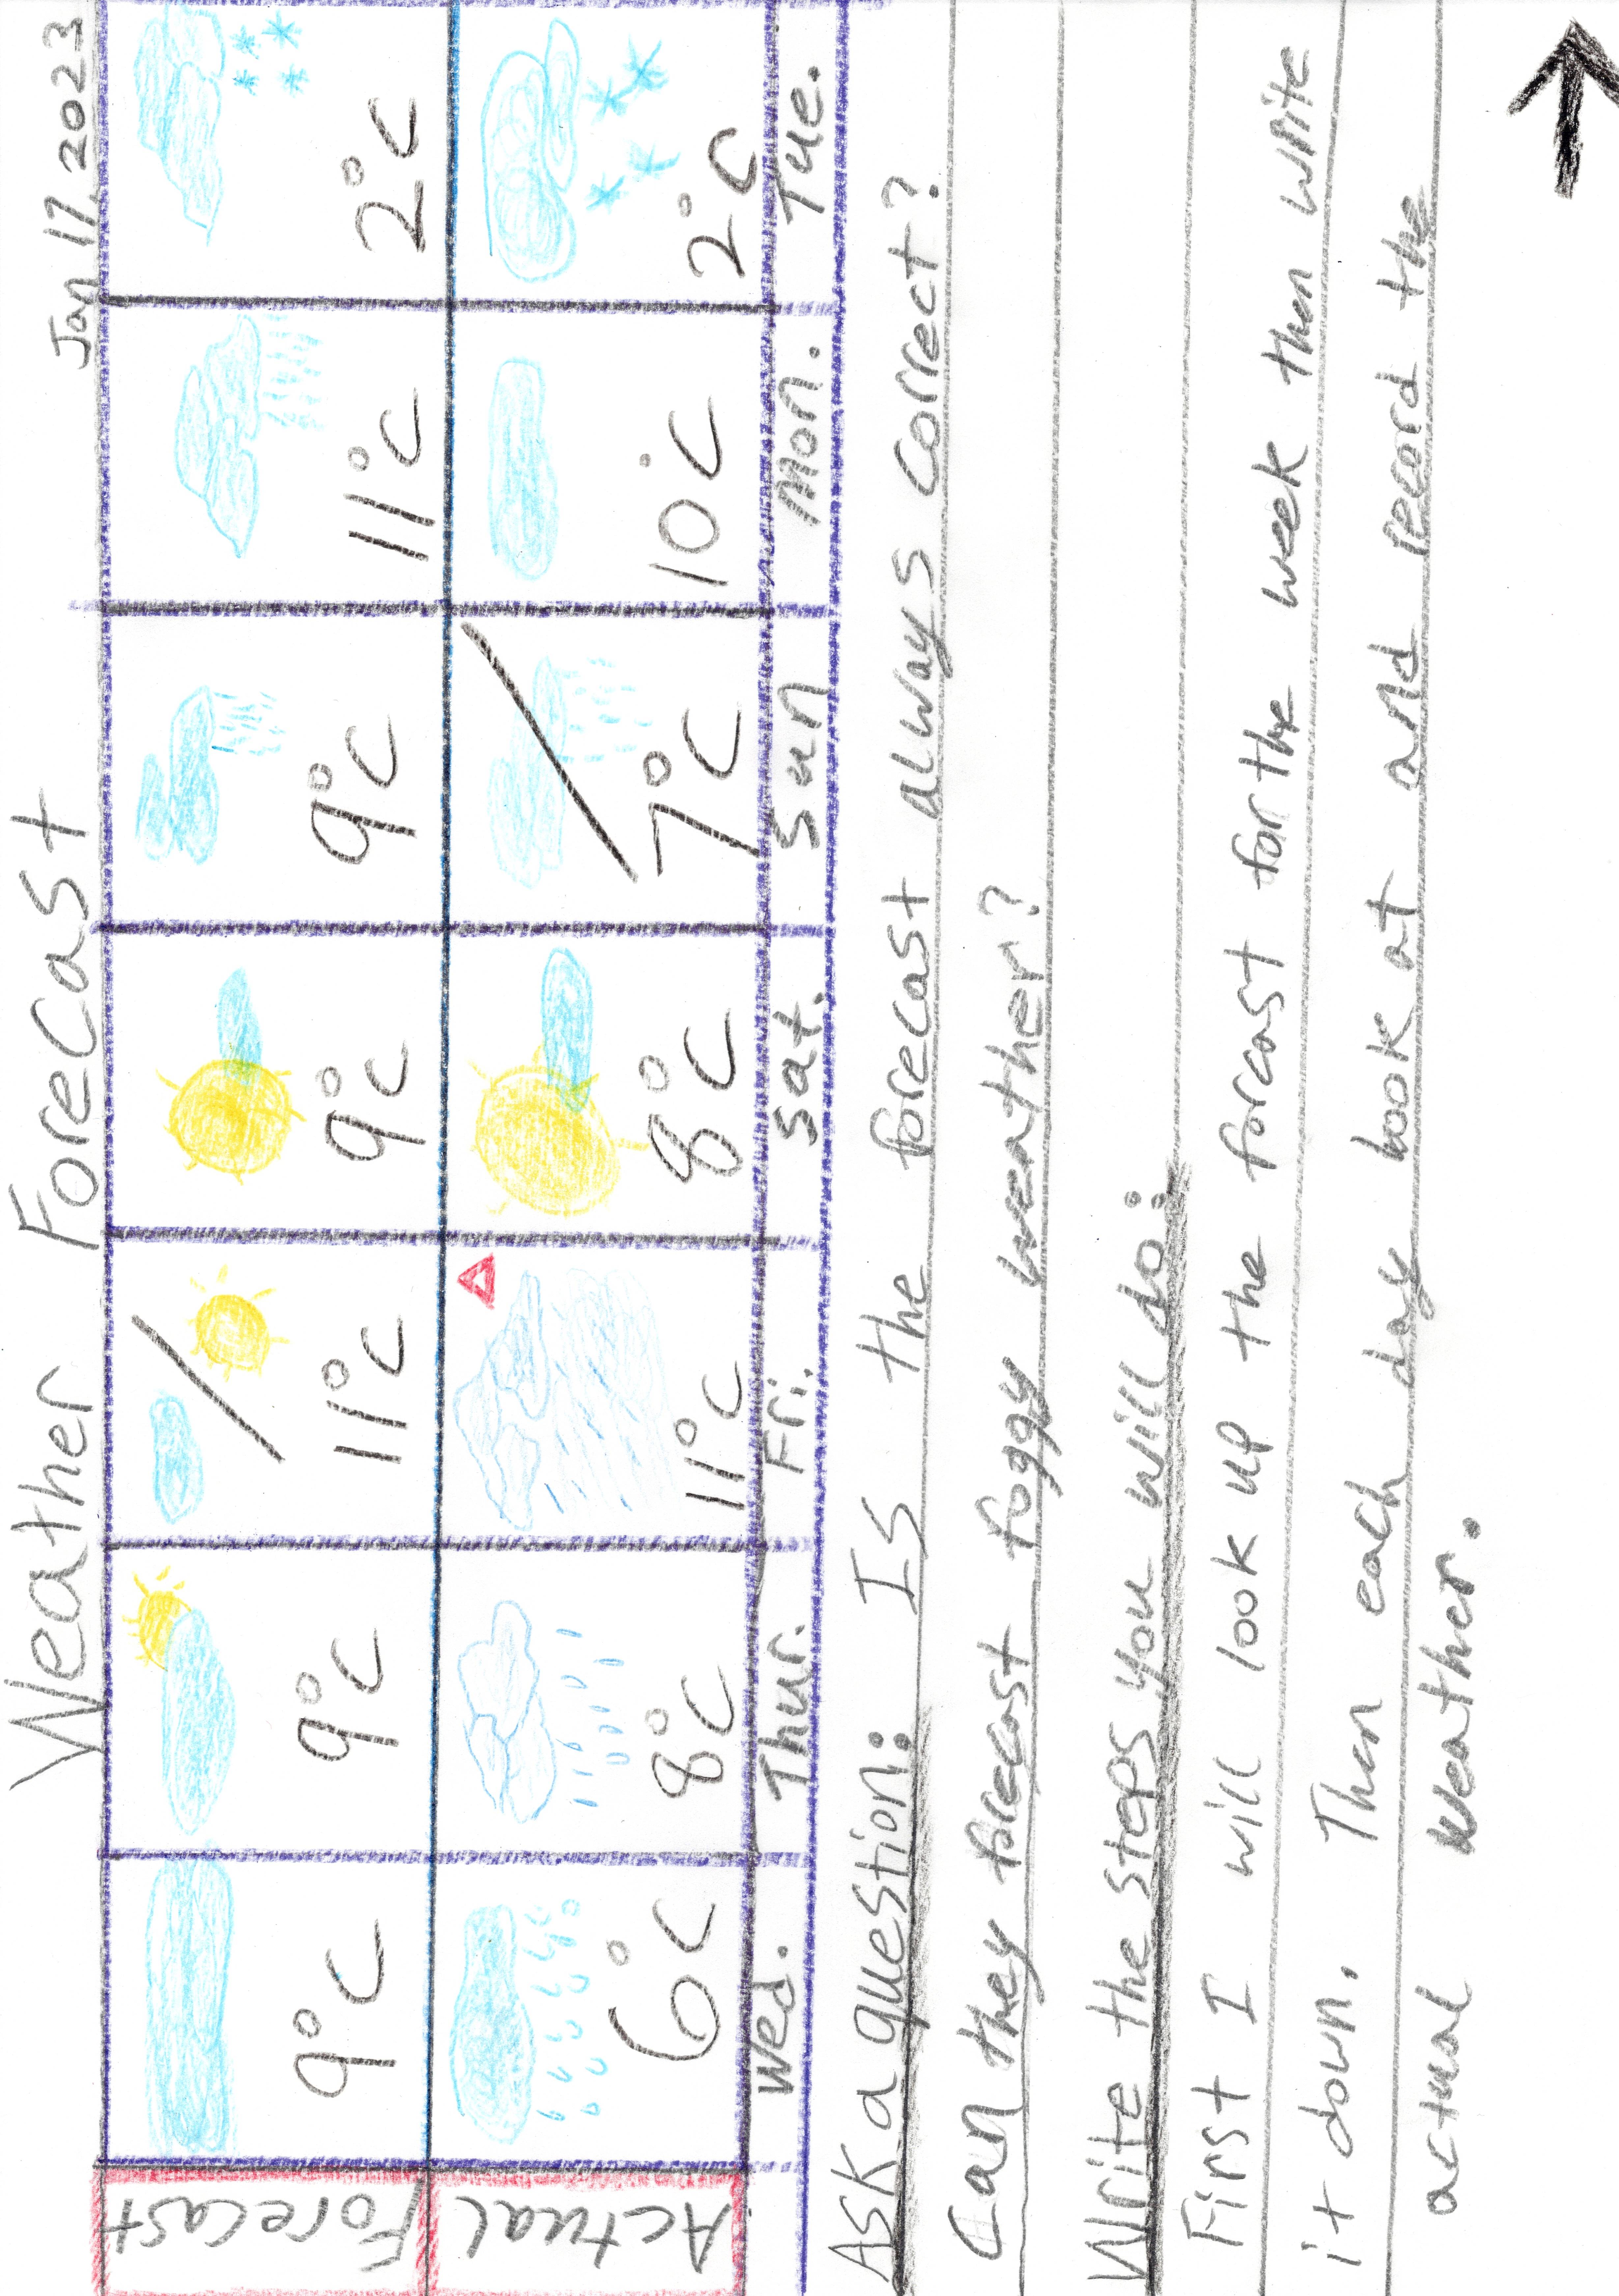 Weather Forecast Jan 17, 2023
Forecast 9°C 9°C 11°C 9°C 9°C 11°C 2°C
Actual 6°C 8°C 11°C 8°C 7°C 10°C 2°C
Wed. Thur. Fri. Sat. Sun Mon. Tue.
Ask a question: Is the forecast always correct?
Can they forecast foggy weather?
Write the steps you will do:
First I will look up the forcast for the week then write
it down. Then each day look at and record the
actual weather.